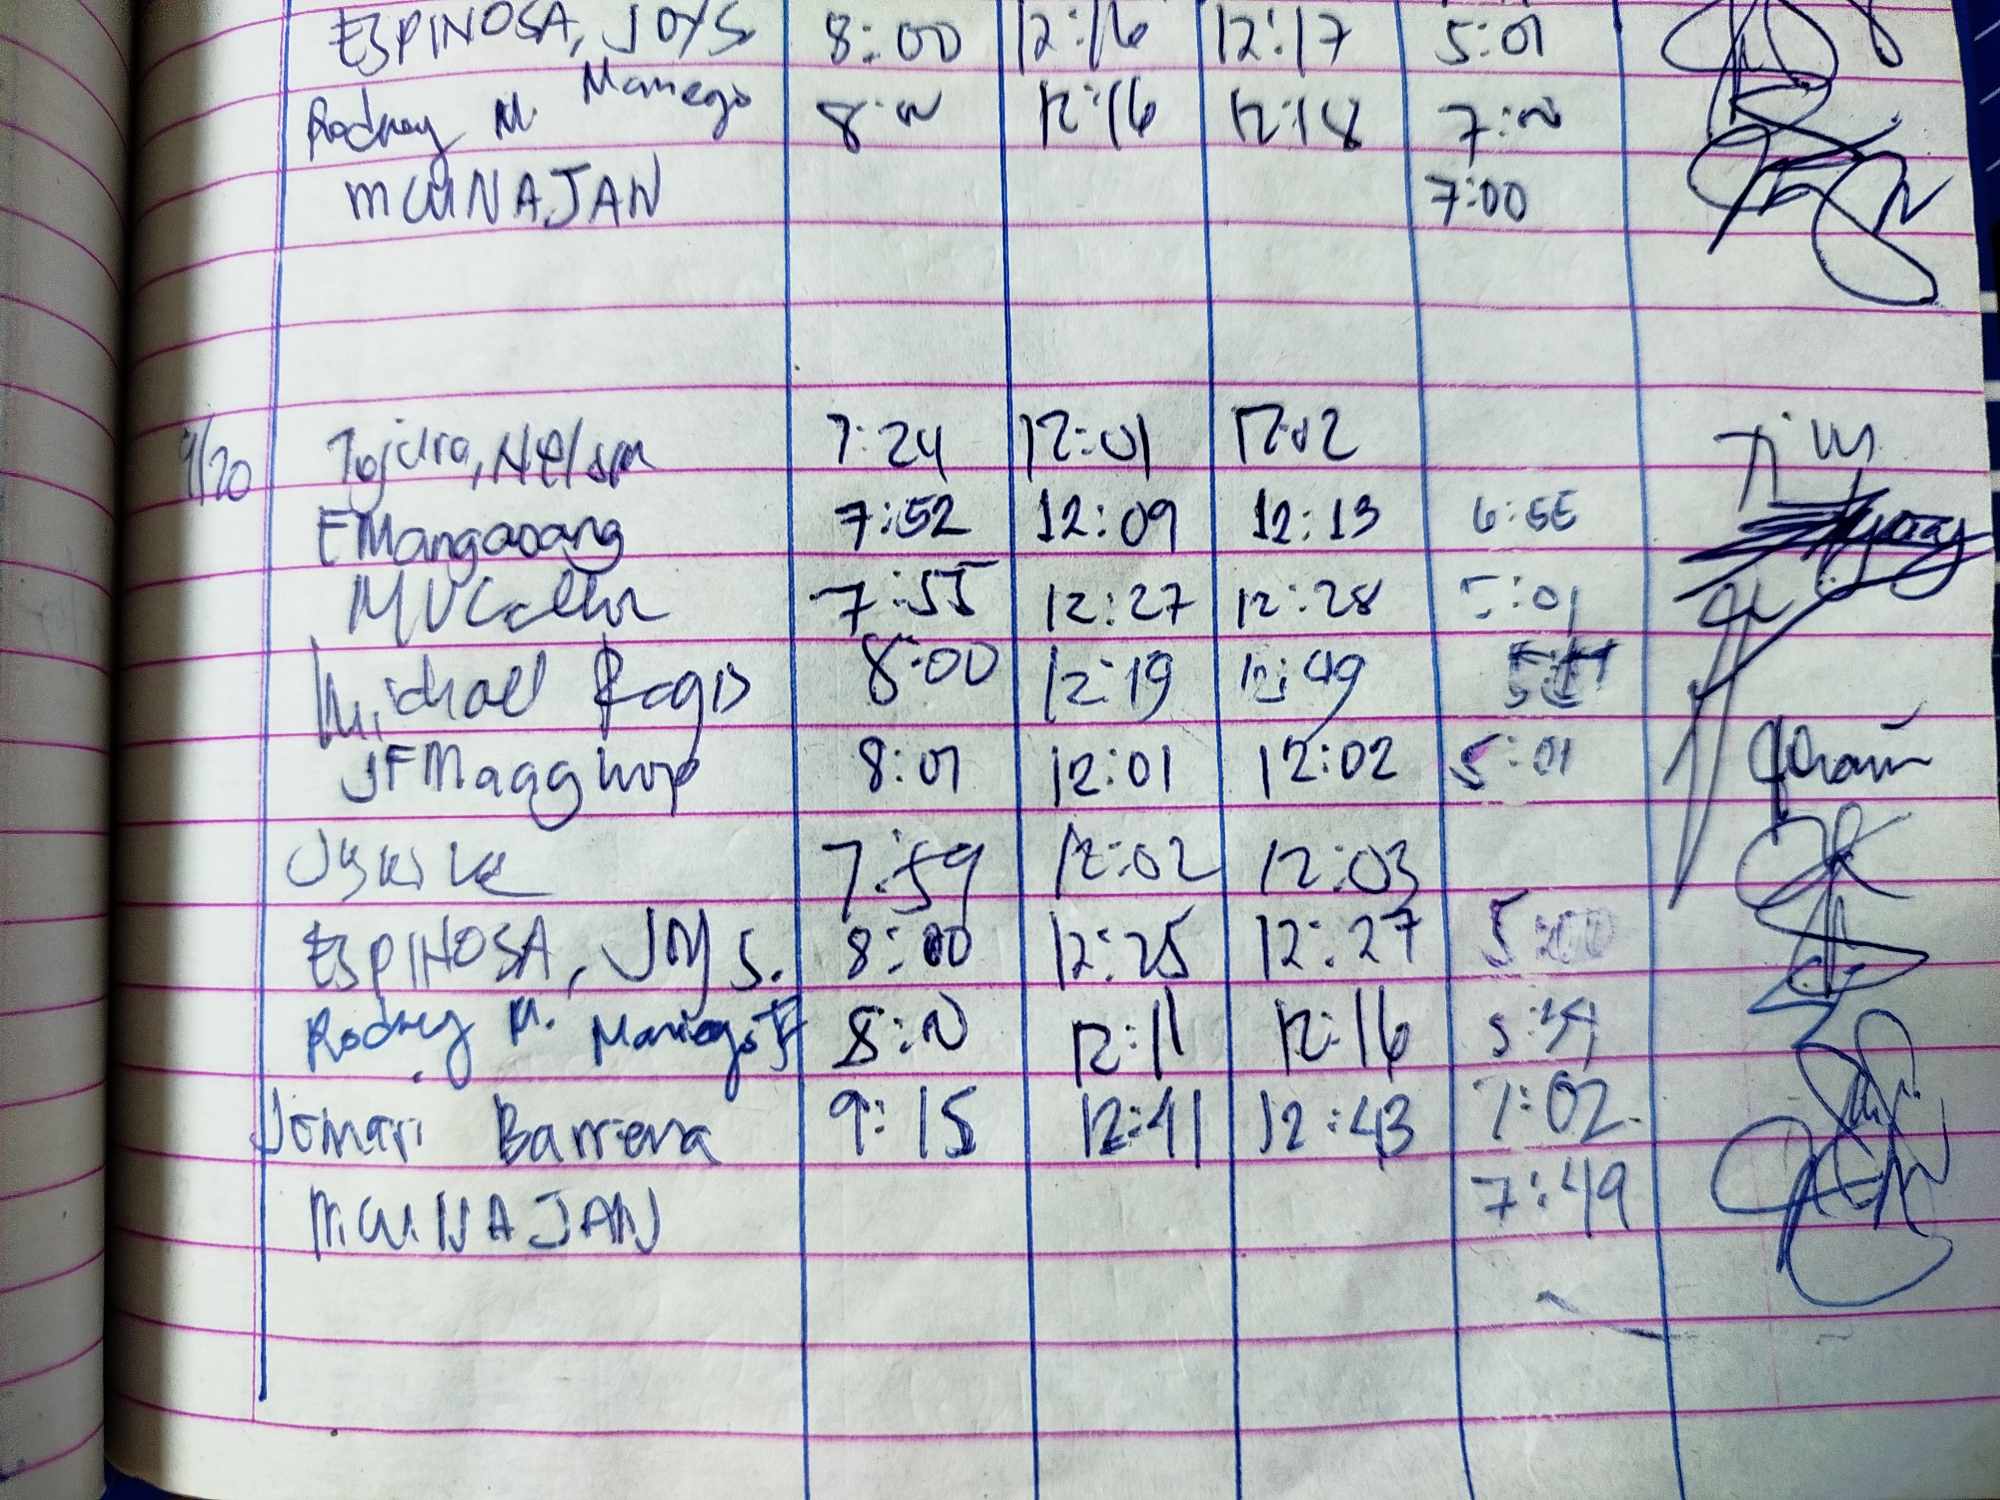 ESPINOSA, JOY S. 8:00 12:16 12:17 5:01
Rodney M. Maniego 8:00 12:16 12:18 7:00
MCUNAJAN 7:00
9/20 Tajura, Nelson 7:24 12:01 12:02
FMangaoang 7:52 12:09 12:13 6:55
7:55 12:27 12:28 5:01
Michael Ragis 8:00 12:19 12:49
8:01 12:01 12:02 5:01
7:59 12:02 12:03
ESPINOSA, JOY S. 8:00 12:25 12:27 5:00
Rodney M. Maniego Jr 8:00 12:11 12:16 5:34
Jomari Barrera 9:15 12:41 12:43 7:02
M.CU.NAJAN 7:49